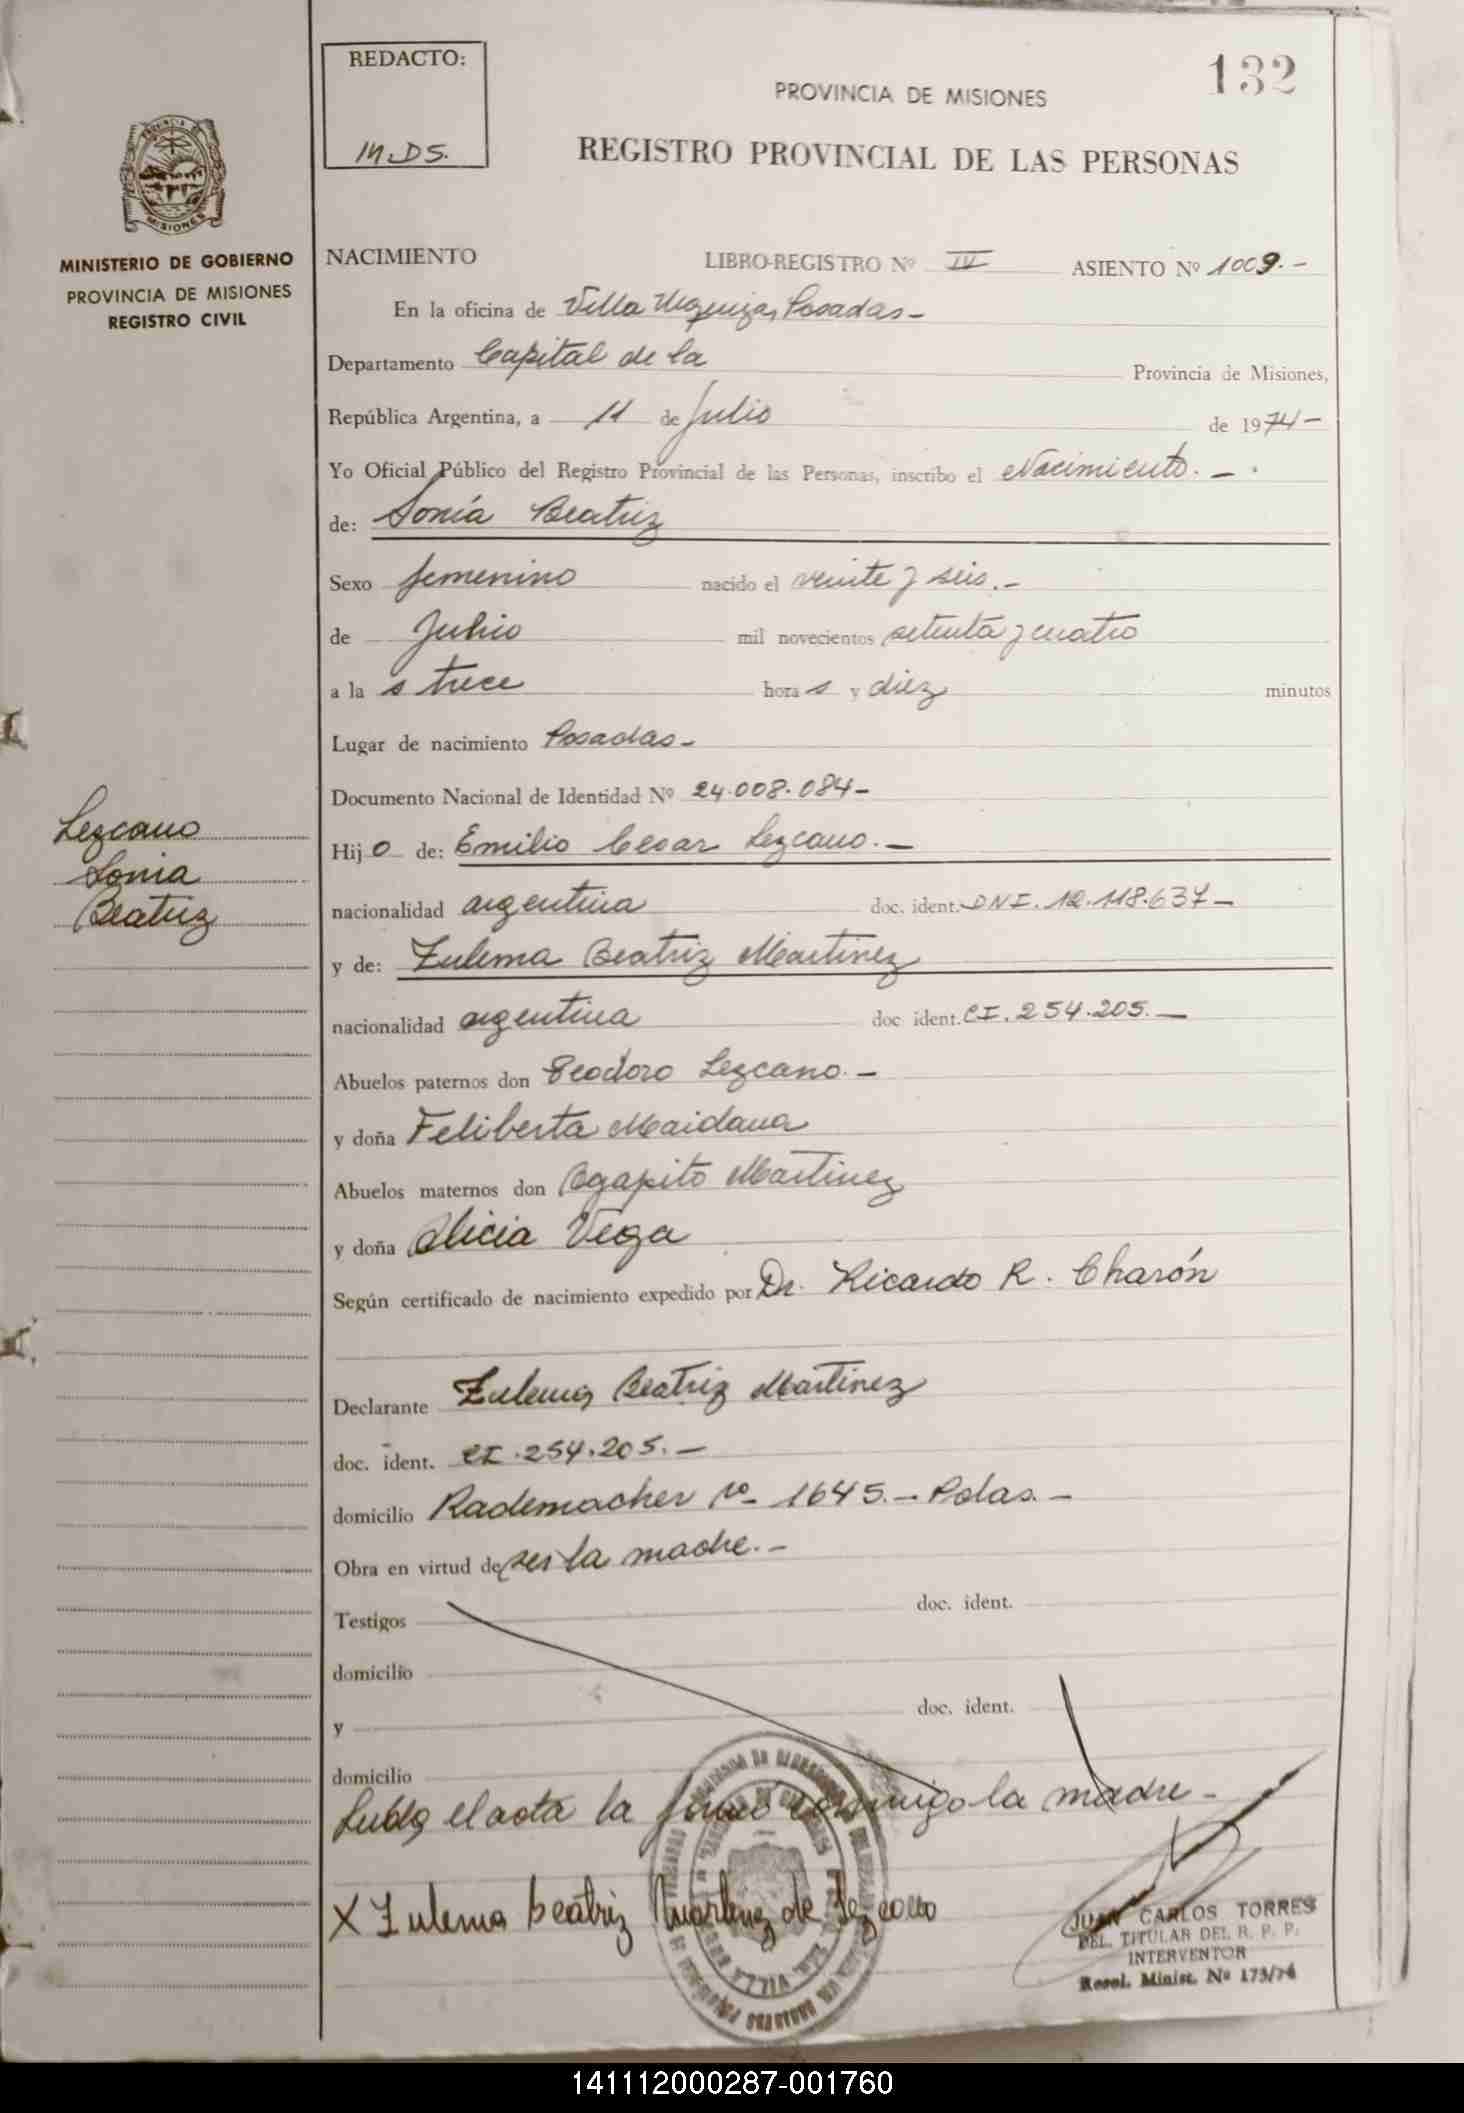 REDACTO:
M.DS.
132
PROVINCIA DE MISIONES
REGISTRO PROVINCIAL DE LAS PERSONAS
MISIONES
MINISTERIO DE GOBIERNO
PROVINCIA DE MISIONES
REGISTRO CIVIL
NACIMIENTO LIBRO-REGISTRO Nº IV ASIENTO Nº 1009.-
En la oficina de Villa Urquiza, Posadas-
Departamento Capital de la Provincia de Misiones,
República Argentina, a 11 de Julio de 1974-
Yo Oficial Público del Registro Provincial de las Personas, inscribo el Nacimiento.-
de: Sonía Beatriz
Sexo femenino nacido el veinte y seis.-
de Junio mil novecientos setenta y cuatro
a la s trece hora s y diez minutos
Lugar de nacimiento Posadas-
Documento Nacional de Identidad Nº 24.008.084-
Lezcano
Sonia
Beatriz
Hij o de: Emilio Cesar Lezcano.-
nacionalidad argentina doc. ident. DNI. 12.118.637-
y de: Zulema Beatriz Martinez
nacionalidad argentina doc ident. CI. 254.205.-
Abuelos paternos don Teodoro Lezcano.-
y doña Feliberta Maidana
Abuelos maternos don Agapito Martinez
y doña Alicia Vega
Según certificado de nacimiento expedido por Dr. Ricardo R. Charón
Declarante Zulema Beatriz Martinez
doc. ident. CI.254.205.-
domicilio Rademacher Nº 1645.- Pdas.-
Obra en virtud de ser la madre.-
Testigos doc. ident.
domicilio
y doc. ident.
domicilio
el acta la firmó conmigo la madre-
X Zulema Beatriz Martinez de Lezcano
JUAN CARLOS TORRES
DEL. TITULAR DEL R. P. P.
INTERVENTOR
Resol. Minist. Nº 173/74
141112000287-001760